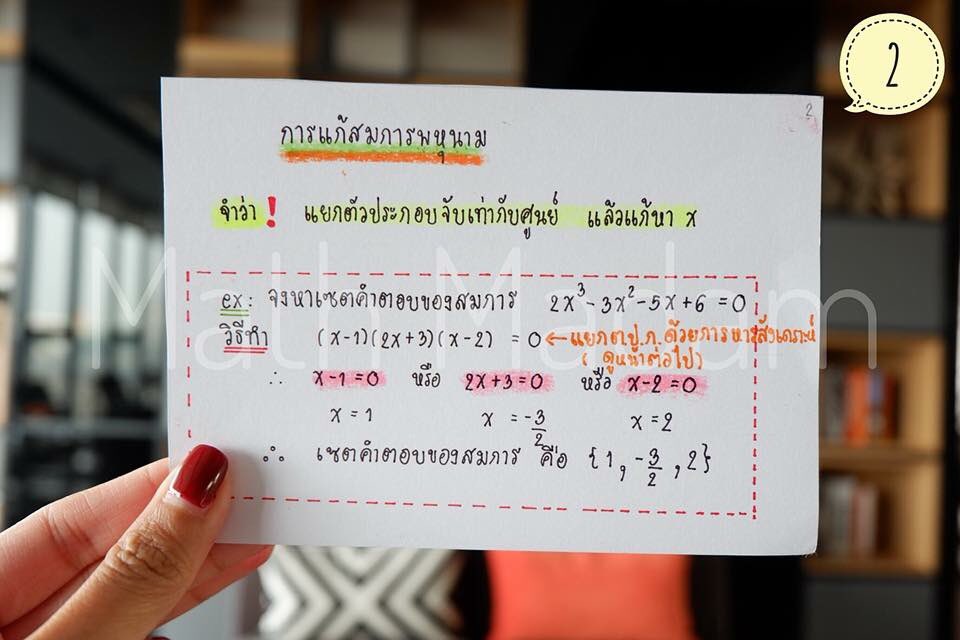 2
2
การแก้สมการพหุนาม
จำว่า ! แยกตัวประกอบจับเท่ากับศูนย์ แล้วแก้หา x
Math Madam
ex : จงหาเซตคำตอบของสมการ 2x³-3x²-5x+6 = 0
วิธีทำ (x-1)(2x+3)(x-2) = 0 ← แยกตป.ก. ด้วยการหารสังเคราะห์
( ดูหน้าต่อไป )
∴ x-1 = 0 หรือ 2x+3 = 0 หรือ x-2 = 0
x = 1 x = -3/2 x = 2
∴ เซตคำตอบของสมการ คือ {1, -3/2, 2}